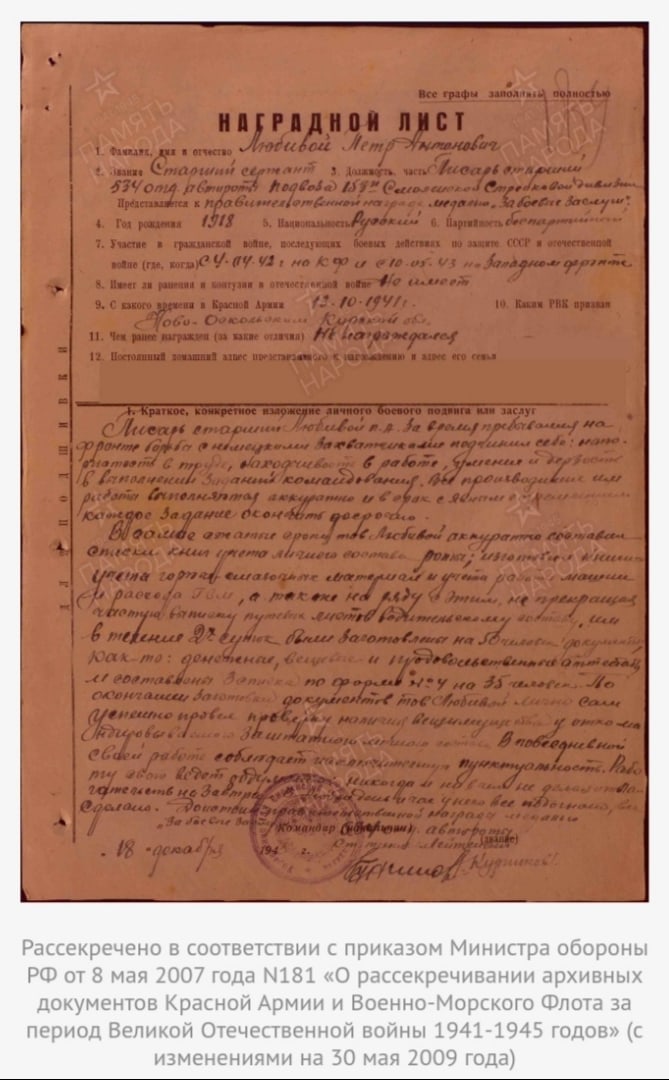 Все графы заполнять полностью
НАГРАДНОЙ ЛИСТ
1. Фамилия, имя и отчество Любивой Петр Антонович
2. Звания Старший сержант 3. Должность, часть Писарь старший
534 отд. автороты подвоза 158й Смоленской Стрелковой дивизии
Представляется к правительственной награде медаль "За боевые заслуги".
4. Год рождения 1918 5. Национальность Русский 6. Партийность беспартийный
7. Участие в гражданской войне, последующих боевых действиях по защите СССР и отечественной
войне (где, когда) С 4-04-42 г на КФ и с 10-05-43 на Западном фронте
8. Имеет ли ранения и контузии в отечественной войне Не имеет
9. С какого времени в Красной Армии 12-10-1941 г. 10. Каким РВК призван
Ново-Оскольским Курской обл.
11. Чем ранее награжден (за какие отличия) Не награждался
12. Постоянный домашний адрес представляемого к награждению и адрес его семьи
1. Краткое, конкретное изложение личного боевого подвига или заслуг
Писарь старший Любивой П.А. за время пребывания на
фронте борьбы с немецкими захватчиками подчинил себе:
в труде, находчивость в работе, умение и дерзость
в выполнении заданий командования. Все производимые им
работа выполняется аккуратно и в срок с
каждое задание окончить досрочно.
В самые сроки тов Любивой аккуратно составил
списки, книги учета личного состава роты; изготовил книги
учета горюче смазочных материал и учета работ машин
и расхода ГСМ, а также на ряду с этим, не прекращая
частую выписку путевых листов водительскому составу, им
в течение 2х суток были заготовлены на 50 человек документы,
как-то: денежные, вещевые и продовольственные аттестаты
и составлены записка по форме №4 на 35 человек. По
окончании заготовки документов тов Любивой лично сам
успешно провел проверку наличия вещимущества у
состава. В повседневной
своей работе соблюдает пунктуальность.
никогда и на чем не
на завтра. у него все
сделано. Достоин правительственной награды медаль
"За боевые
Командир автороты
(звание)
18 декабря 194 г. Лейтенант
ПАМЯТЬ
НАРОДА
ДЛЯ ПОДШИВКИ
Рассекречено в соответствии с приказом Министра обороны
РФ от 8 мая 2007 года N181 «О рассекречивании архивных
документов Красной Армии и Военно-Морского Флота за
период Великой Отечественной войны 1941-1945 годов» (с
изменениями на 30 мая 2009 года)